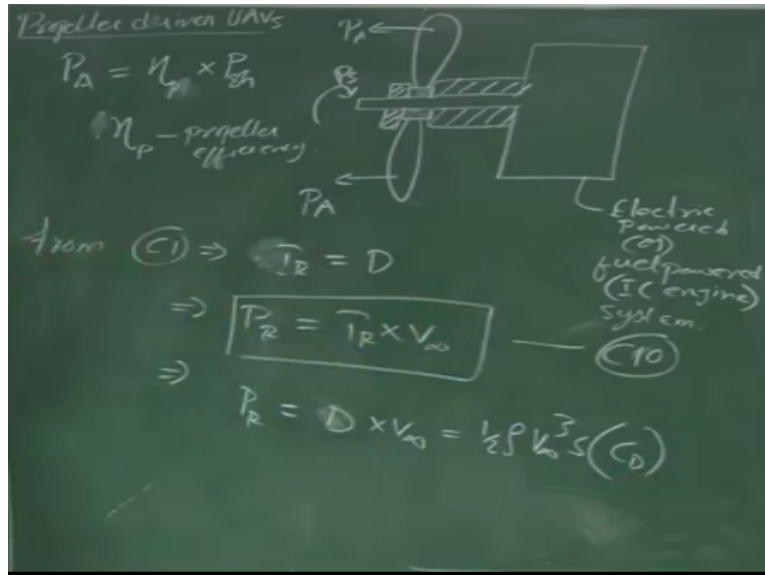 Propeller deriven UAVs
P_A = η_p × P_sh
η_p – propeller
efficiency.
P_A
P_s
P_A
Electric
powered
(or)
fuel powered
(IC engine)
system.
from (C1) ⇒ T_R = D
⇒ P_R = T_R × V_∞ — (C10)
⇒ P_R = D × V_∞ = ½ ρ V_∞³ S (C_D)